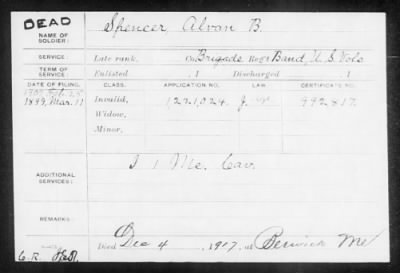 DEAD
NAME OF SOLDIER: Spencer, Alvan B.
SERVICE: Late rank, Co. Brigade Reg't Band, U.S. Vols
TERM OF SERVICE: Enlisted , 1 Discharged , 1
DATE OF FILING. CLASS. APPLICATION NO. LAW. CERTIFICATE NO.
1899, Mar. 11 Invalid, 1221024 992817
Widow,
Minor,
ADDITIONAL SERVICES: I 1 Me. Cav.
REMARKS:
Died Dec 4, 1907, at Berwick Me